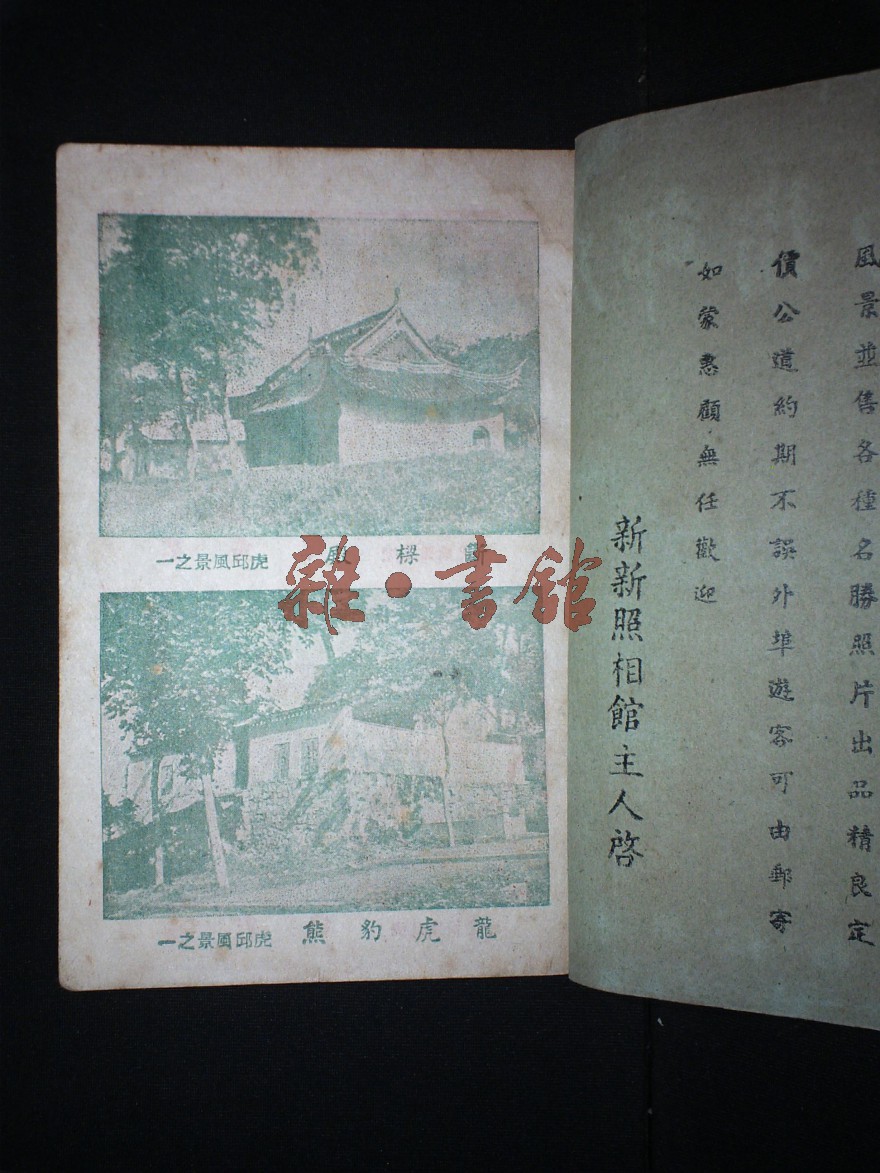 風景並售各種名勝照片出品精良定
價公道約期不誤外埠遊客可由郵寄
如蒙惠顧無任歡迎
新新照相館主人啓
斷樑殿 虎邱風景之一
龍虎豹熊 虎邱風景之一
雜·書館